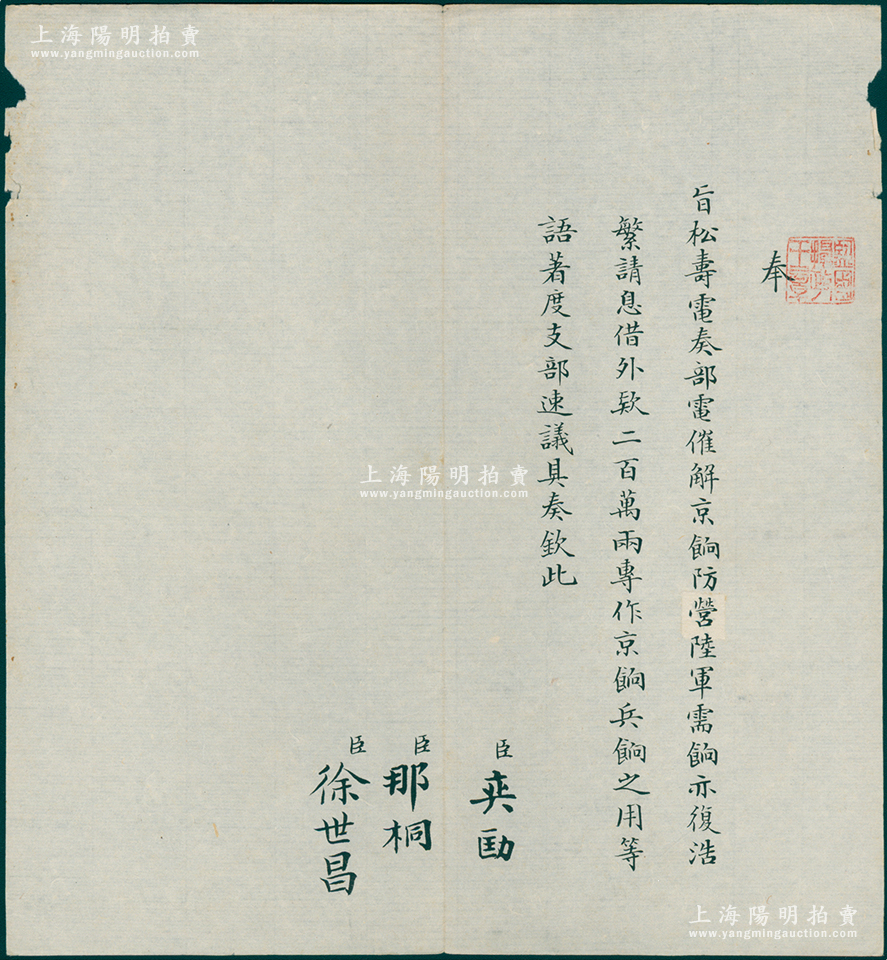 上海陽明拍賣
www.yangmingauction.com
監國
攝政
王
奉
旨松壽電奏部電催解京餉防營陸軍需餉亦復浩
繁請息借外欵二百萬兩專作京餉兵餉之用等
語著度支部速議具奏欽此
臣奕劻
臣那桐
臣徐世昌
上海陽明拍賣
www.yangmingauction.com
上海陽明拍賣
www.yangmingauction.com